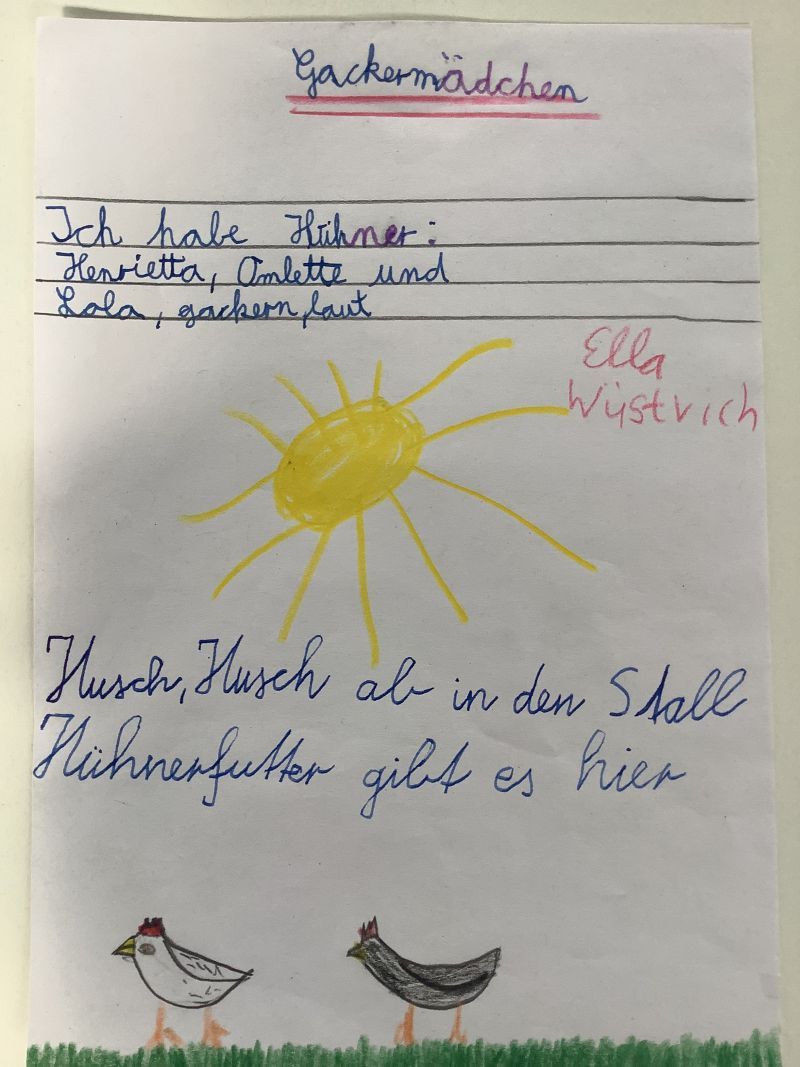 Gackermädchen
Ich habe Hühner:
Henrietta, Omlette und
Lola, gackern, laut
Ella
Wüstrich
Husch, Husch ab in den Stall
Hühnerfutter gibt es hier